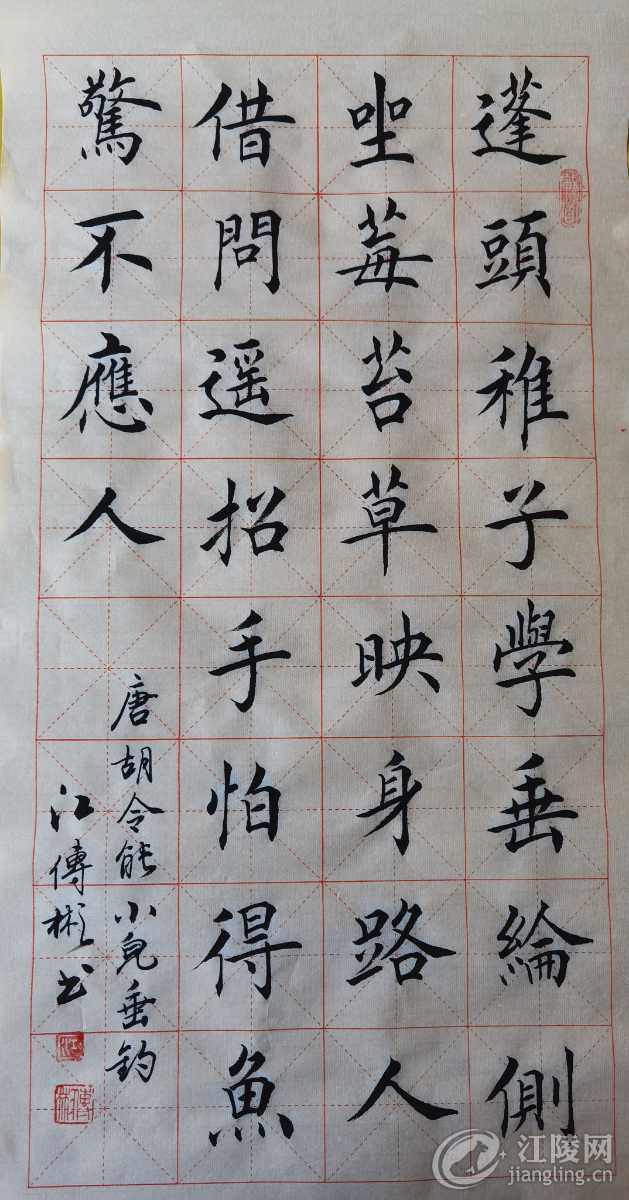 蓬頭稚子學垂綸側
坐莓苔草映身路人
借問遥招手怕得魚
驚不應人
唐胡令能小兒垂釣
江傳彬书
江陵网
jiangling.cn